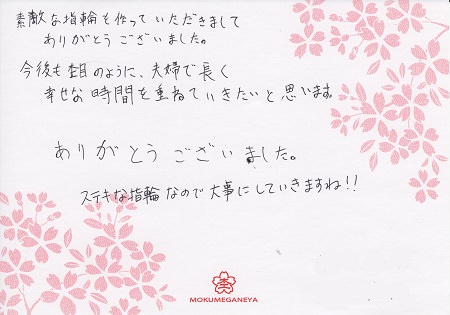 素敵な指輪を作っていただきまして
ありがとうございました。
今後も杢目のように、夫婦で長く
幸せな時間を重ねていきたいと思います。
ありがとうございました。
ステキな指輪なので大事にしていきますね!!
杢
MOKUMEGANEYA